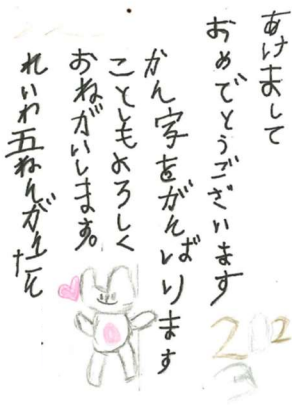 あけまして
おめでとうございます
かん字をがんばります
ことしもよろしく
おねがいします。
れいわ五ねんがんたん
202
3